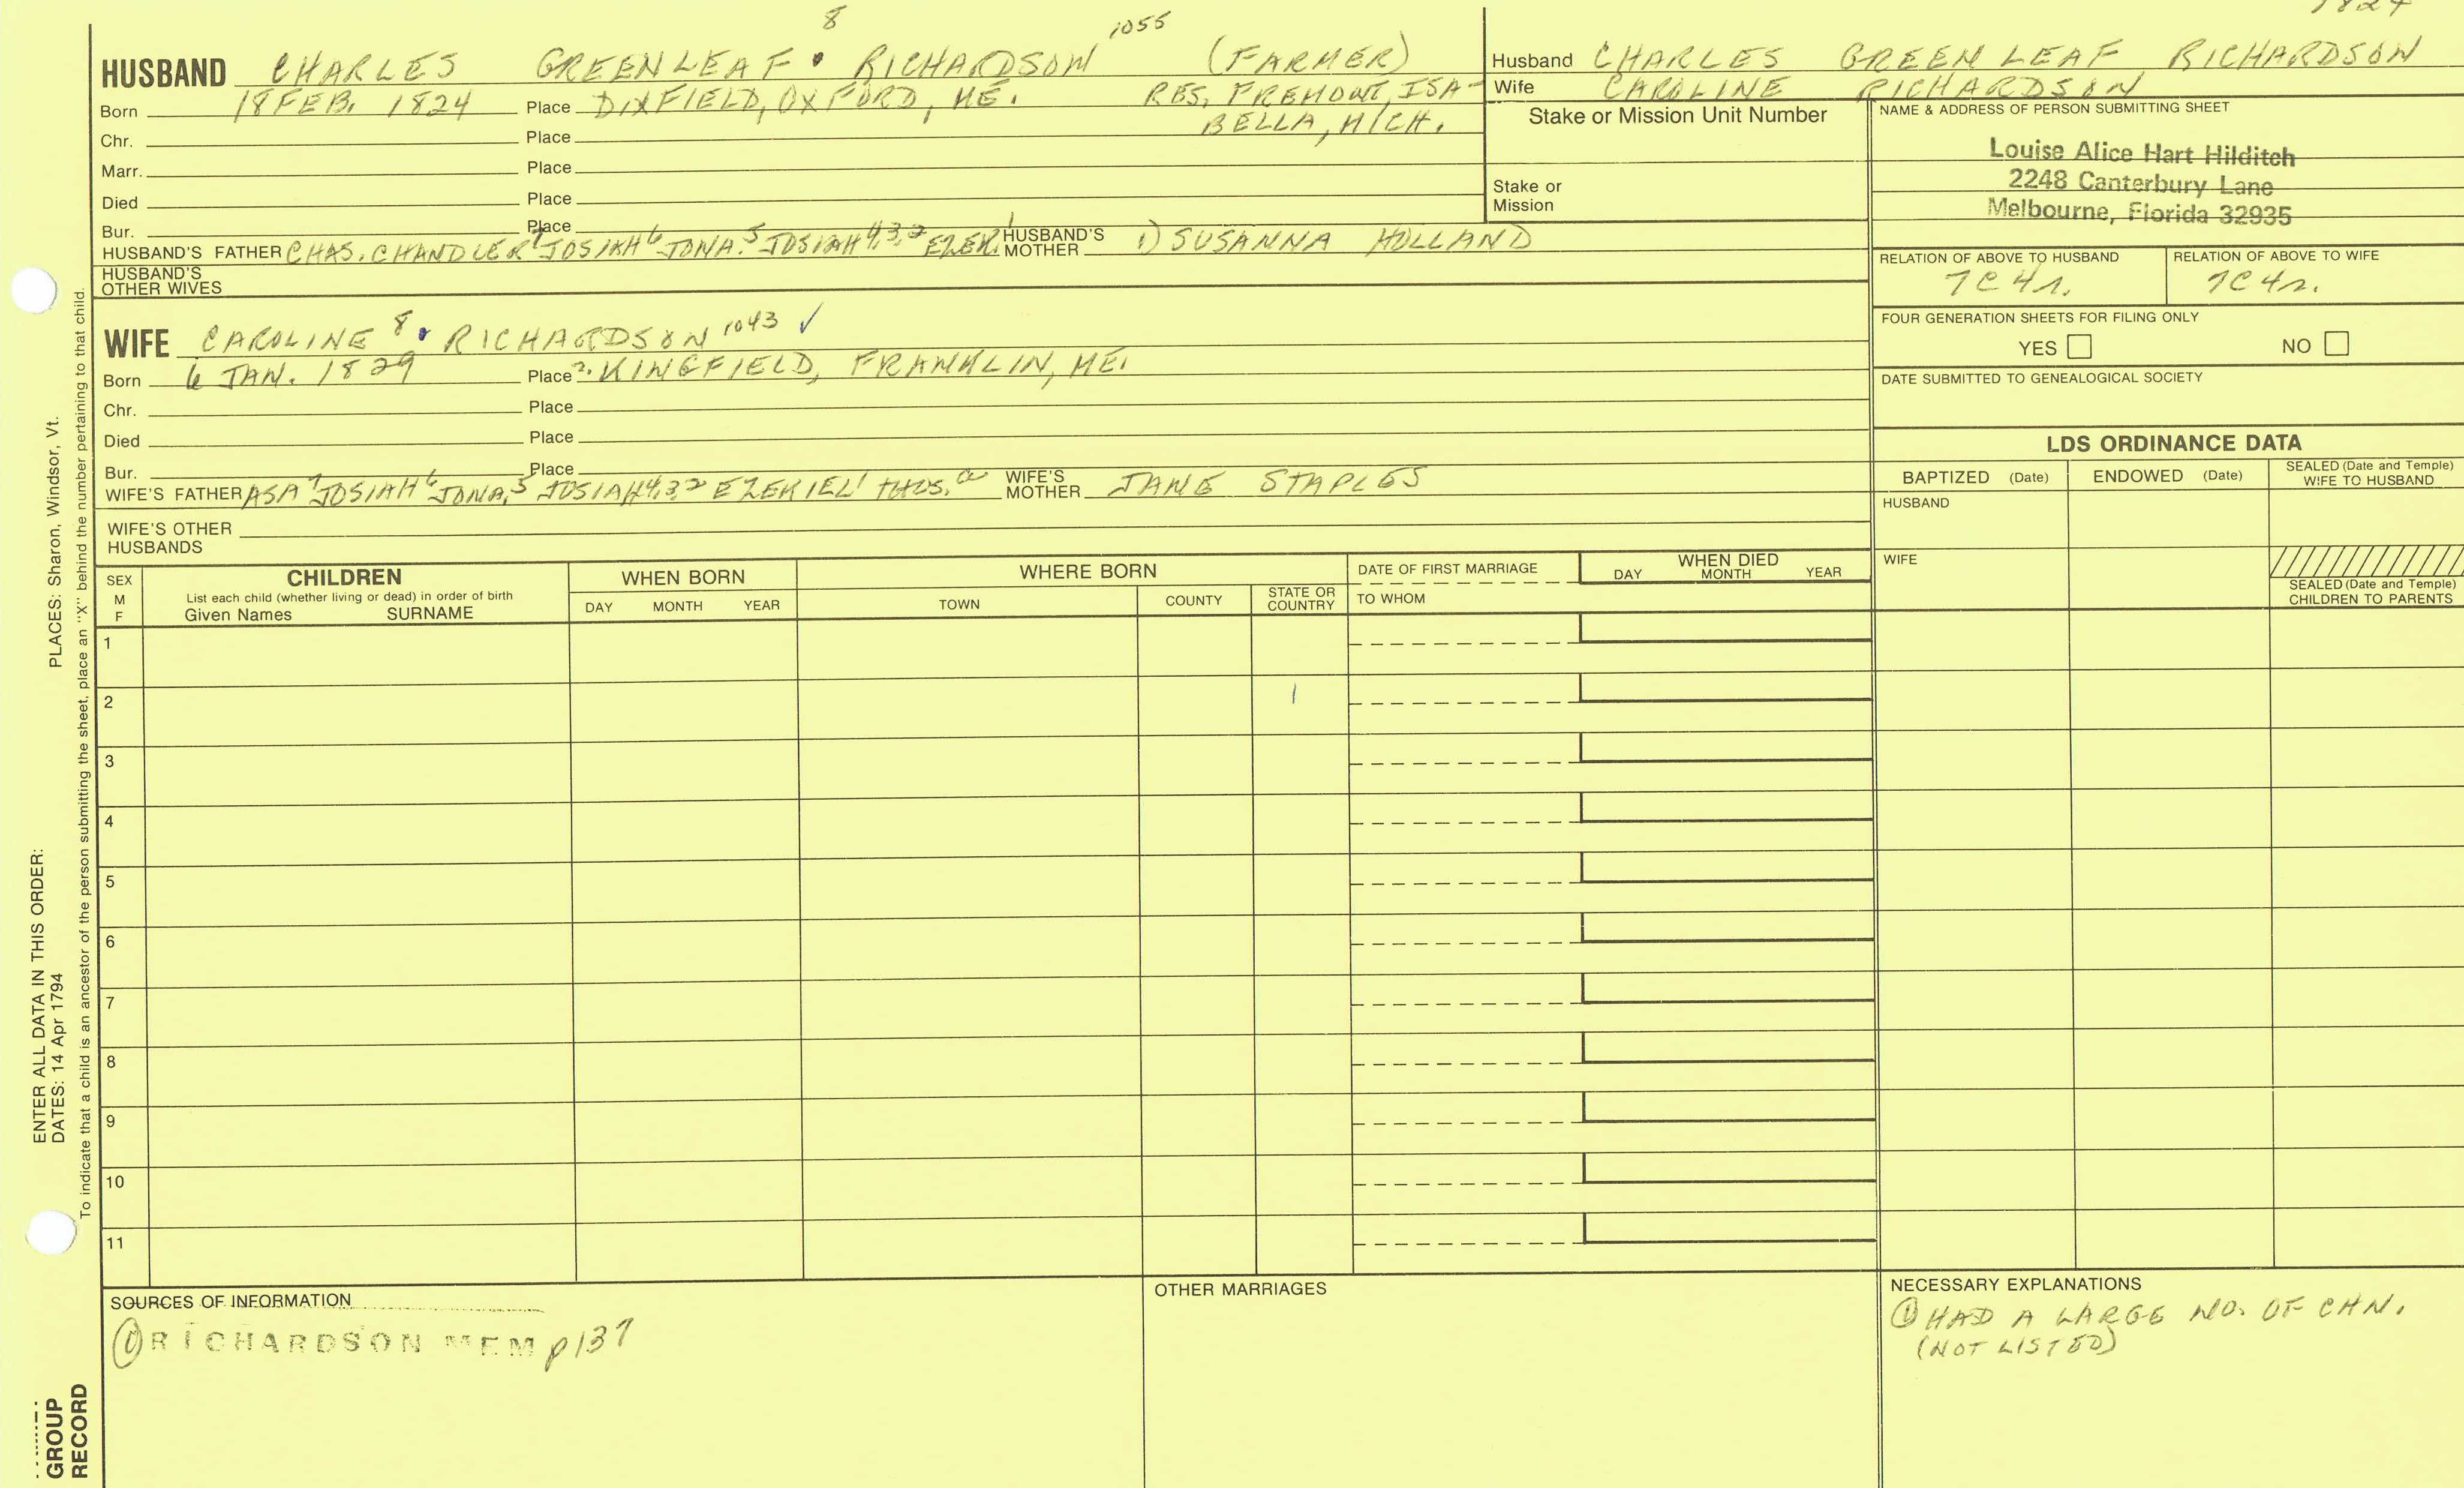 1824
8
1055
HUSBAND CHARLES GREENLEAF • RICHARDSON (FARMER)
Born 18 FEB. 1824 Place DIXFIELD, OXFORD, ME. RES. FREMONT, ISA-
BELLA, MICH.
Chr. Place
Marr. Place
Died Place
Bur. Place
HUSBAND'S FATHER CHAS. CHANDLER7 JOSIAH6 JONA.5 JOSIAH4,3,2 EZEK.1 HUSBAND'S MOTHER 1) SUSANNA HOLLAND
HUSBAND'S OTHER WIVES
WIFE CAROLINE 8 • RICHARDSON 1043 ✓
Born 6 JAN. 1829 Place ?. KINGFIELD, FRANKLIN, ME.
Chr. Place
Died Place
Bur. Place
WIFE'S FATHER ASA7 JOSIAH6 JONA.5 JOSIAH4,3,2 EZEKIEL1 THOS.a WIFE'S MOTHER JANE STAPLES
WIFE'S OTHER HUSBANDS
Husband CHARLES GREENLEAF RICHARDSON
Wife CAROLINE RICHARDSON
Stake or Mission Unit Number
Stake or
Mission
NAME & ADDRESS OF PERSON SUBMITTING SHEET
Louise Alice Hart Hilditch
2248 Canterbury Lane
Melbourne, Florida 32935
RELATION OF ABOVE TO HUSBAND RELATION OF ABOVE TO WIFE
7C4r. 7C4r.
FOUR GENERATION SHEETS FOR FILING ONLY
YES NO
DATE SUBMITTED TO GENEALOGICAL SOCIETY
LDS ORDINANCE DATA
BAPTIZED (Date) ENDOWED (Date) SEALED (Date and Temple)
WIFE TO HUSBAND
HUSBAND
WIFE
SEALED (Date and Temple)
CHILDREN TO PARENTS
SEX
M
F
CHILDREN
List each child (whether living or dead) in order of birth
Given Names SURNAME
WHEN BORN
DAY MONTH YEAR
WHERE BORN
TOWN COUNTY STATE OR COUNTRY
DATE OF FIRST MARRIAGE
TO WHOM
WHEN DIED
DAY MONTH YEAR
1
2
3
4
5
6
7
8
9
10
11
SOURCES OF INFORMATION
① RICHARDSON MEM p137
OTHER MARRIAGES
NECESSARY EXPLANATIONS
① HAD A LARGE NO. OF CHN.
(NOT LISTED)
ENTER ALL DATA IN THIS ORDER:
DATES: 14 Apr 1794 PLACES: Sharon, Windsor, Vt.
To indicate that a child is an ancestor of the person submitting the sheet, place an "X" behind the number pertaining to that child.
GROUP
RECORD